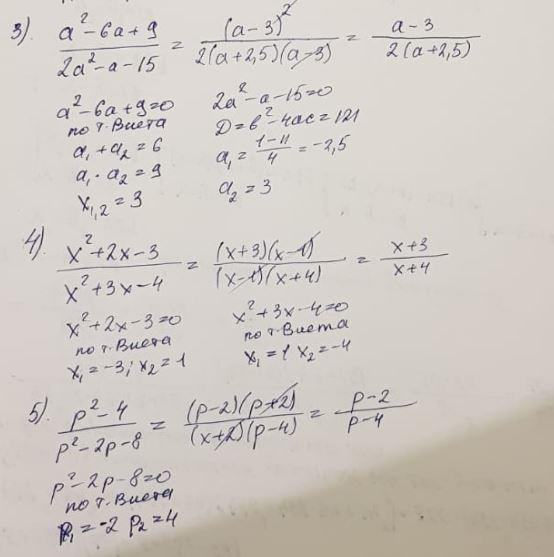 3). (a² - 6a + 9)/(2a² - a - 15) = (a-3)²/(2(a+2,5)(a-3)) = (a-3)/(2(a+2,5))
a² - 6a + 9 = 0
по т. Виета
a₁ + a₂ = 6
a₁ · a₂ = 9
x₁,₂ = 3
2a² - a - 15 = 0
D = b² - 4ac = 121
a₁ = (1-11)/4 = -2,5
a₂ = 3
4). (x² + 2x - 3)/(x² + 3x - 4) = (x+3)(x-1)/((x-1)(x+4)) = (x+3)/(x+4)
x² + 2x - 3 = 0
по т. Виета
x₁ = -3; x₂ = 1
x² + 3x - 4 = 0
по т. Виета
x₁ = 1 x₂ = -4
5). (p² - 4)/(p² - 2p - 8) = (p-2)(p+2)/((x+2)(p-4)) = (p-2)/(p-4)
p² - 2p - 8 = 0
по т. Виета
p₁ = -2 p₂ = 4